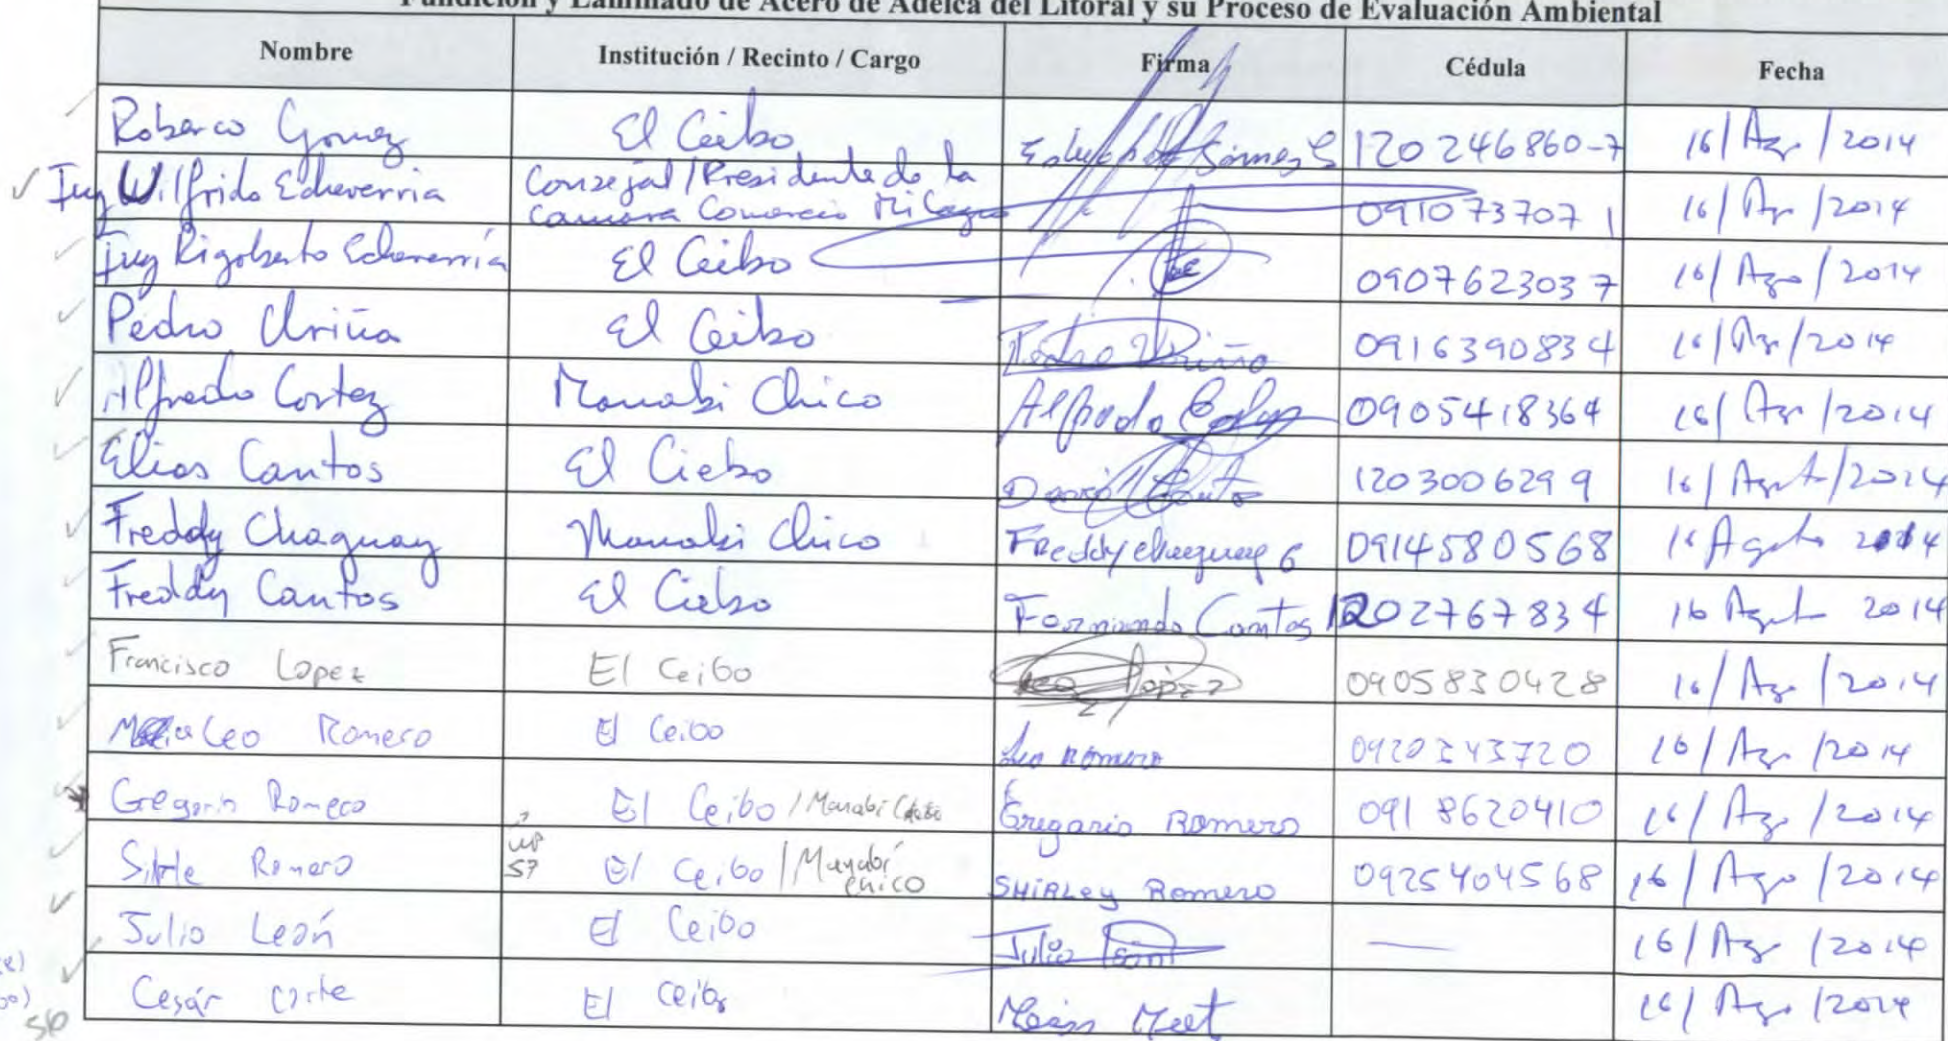 Fundición y Laminado de Acero de Adelca del Litoral y su Proceso de Evaluación Ambiental
Nombre Institución / Recinto / Cargo Firma Cédula Fecha
Roberto Gomez El Ceibo Gómez S 120246860-7 16/Ago/2014
Ing Wilfrido Echeverria Consejal/Presidente de la Camara Comercio Milagro 0910737071 16/Ago/2014
Ing Rigoberto Echeverría El Ceibo 0907623037 16/Ago/2014
Pedro Uriña El Ceibo Pedro Uriño 0916390834 16/Ago/2014
Alfredo Cortez Manabi Chico Alfredo 0905418364 16/Ago/2014
Elias Cantos El Ciebo 1203006299 16/Agst/2014
Freddy Chaguay Manabi Chico Freddy chaguay G 0914580568 16 Agoto 2014
Freddy Cantos El Ciebo Cantos 1202767834 16 Agoto 2014
Francisco Lopez El Ceibo Lopez 0905830428 16/Ago/2014
Leo Romero El Ceibo Leo Romero 16/Ago/2014
Gregorio Romero El Ceibo / Manabi Gregorio Romero 0918620410 16/Ago/2014
Romero El Ceibo / Manabí chico SHIRLEY Romero 0925404568 16/Ago/2014
Julio León El Ceibo Julio León — 16/Ago/2014
Cesár El Ceibo 16/Ago/2014